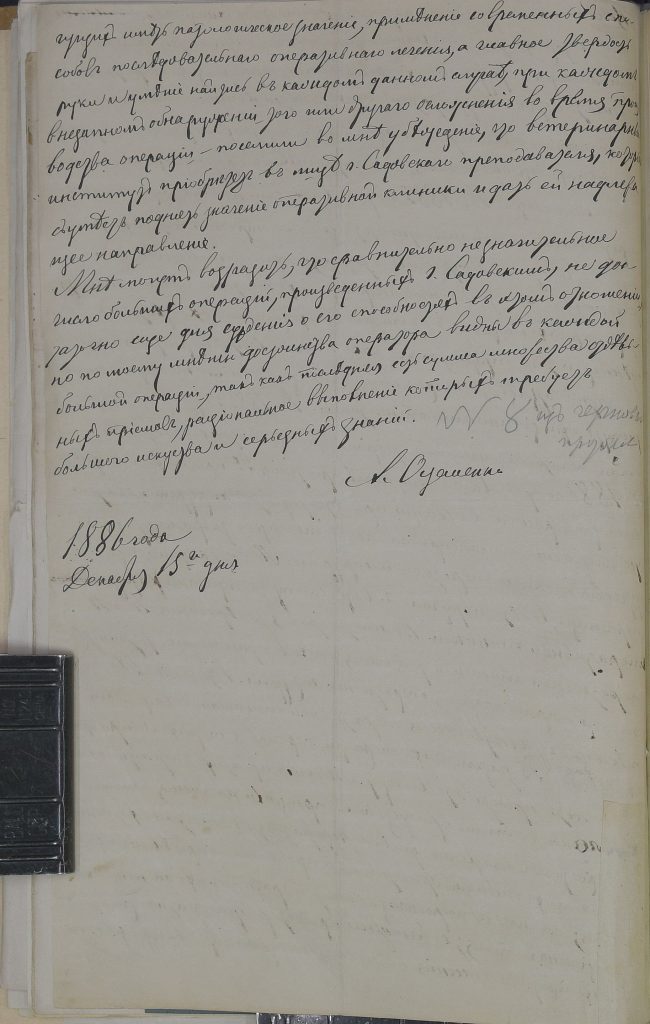 гущихъ имѣть патологическое значеніе, примѣненіе современныхъ спо-
собовъ послѣдовательнаго оперативнаго леченія, а главное твердость
руки и умѣніе найтись въ каждомъ данномъ случаѣ, при каждомъ
внезапномъ обнаруженіи того или другаго осложненія во время произ-
водства операціи – поселили во мнѣ убѣжденіе, что ветеринарный
институтъ пріобрѣтетъ въ лицѣ г. Садовскаго преподавателя, который
съумѣетъ поднять значеніе оперативной клиники и дать ей надлежа-
щее направленіе.
Мнѣ могутъ возразить, что сравнительно незначительное
число большихъ операцій, произведенныхъ г. Садовскимъ, не дос-
таточно еще для сужденія о его способностяхъ въ этомъ отношеніи,
но по моему мнѣнію достоинства оператора видны въ каждой
большой операціи, такъ какъ послѣдняя есть сумма множества отдѣль-
ныхъ пріемовъ, раціональное выполненіе которыхъ требуетъ
большаго искуства и серьезныхъ знаній.
А. Остапенко
1886 года
Декабря 15го дня